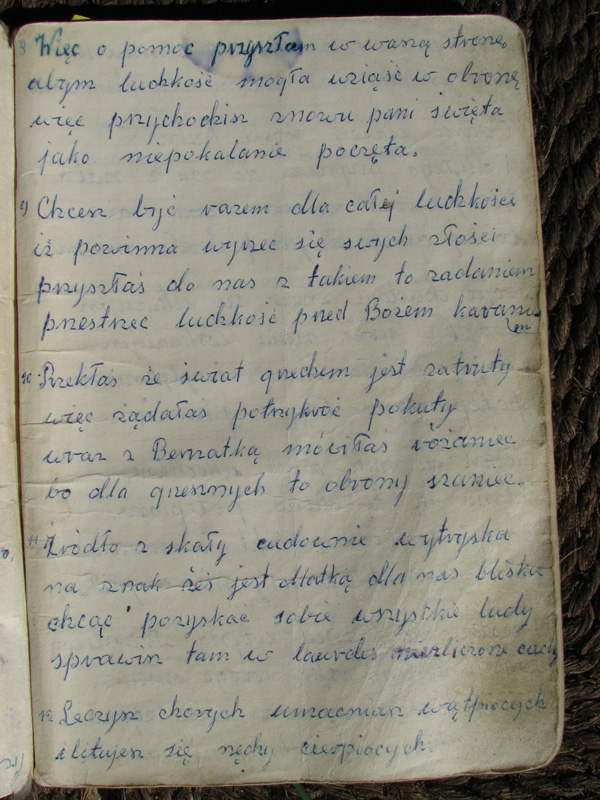 8 Więc o pomoc przyszłam w waszą stronę,
abym ludzkość mogła wziąść w obronę
więc przychodzisz znowu pani święta
jako niepokalanie poczęta.
9) Chcesz być razem dla całej ludzkości
iż powinna wyrzec się swych złości
przyszłaś do nas z takiem to zadaniem
przestrzec ludzkość pred Bożem karaniem
10 Rzekłaś że świat grzechem jest zatruty
więc żądałaś potrzykroć pokuty
wraz z Bernatką mówiłaś różaniec
bo dla grzesznych to obrony szaniec.
11 Źródło z skały cudownie wytryska
na znak żeś jest Matką dla nas bliska
chcąc pozyskac sobie wszystkie ludy
sprawisz tam w lourdes niezliczone cudy
12 Leczysz chorych umacniasz wątpiocych
i litujesz się nędzy cierpiocych.